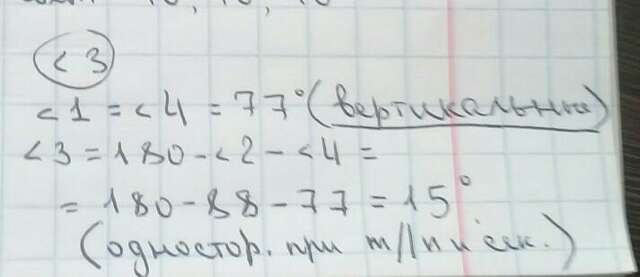 <3
<1 = <4 = 77° (вертикальные)
<3 = 180 - <2 - <4 =
= 180 - 88 - 77 = 15°
(одностор. при m||n и сек.)